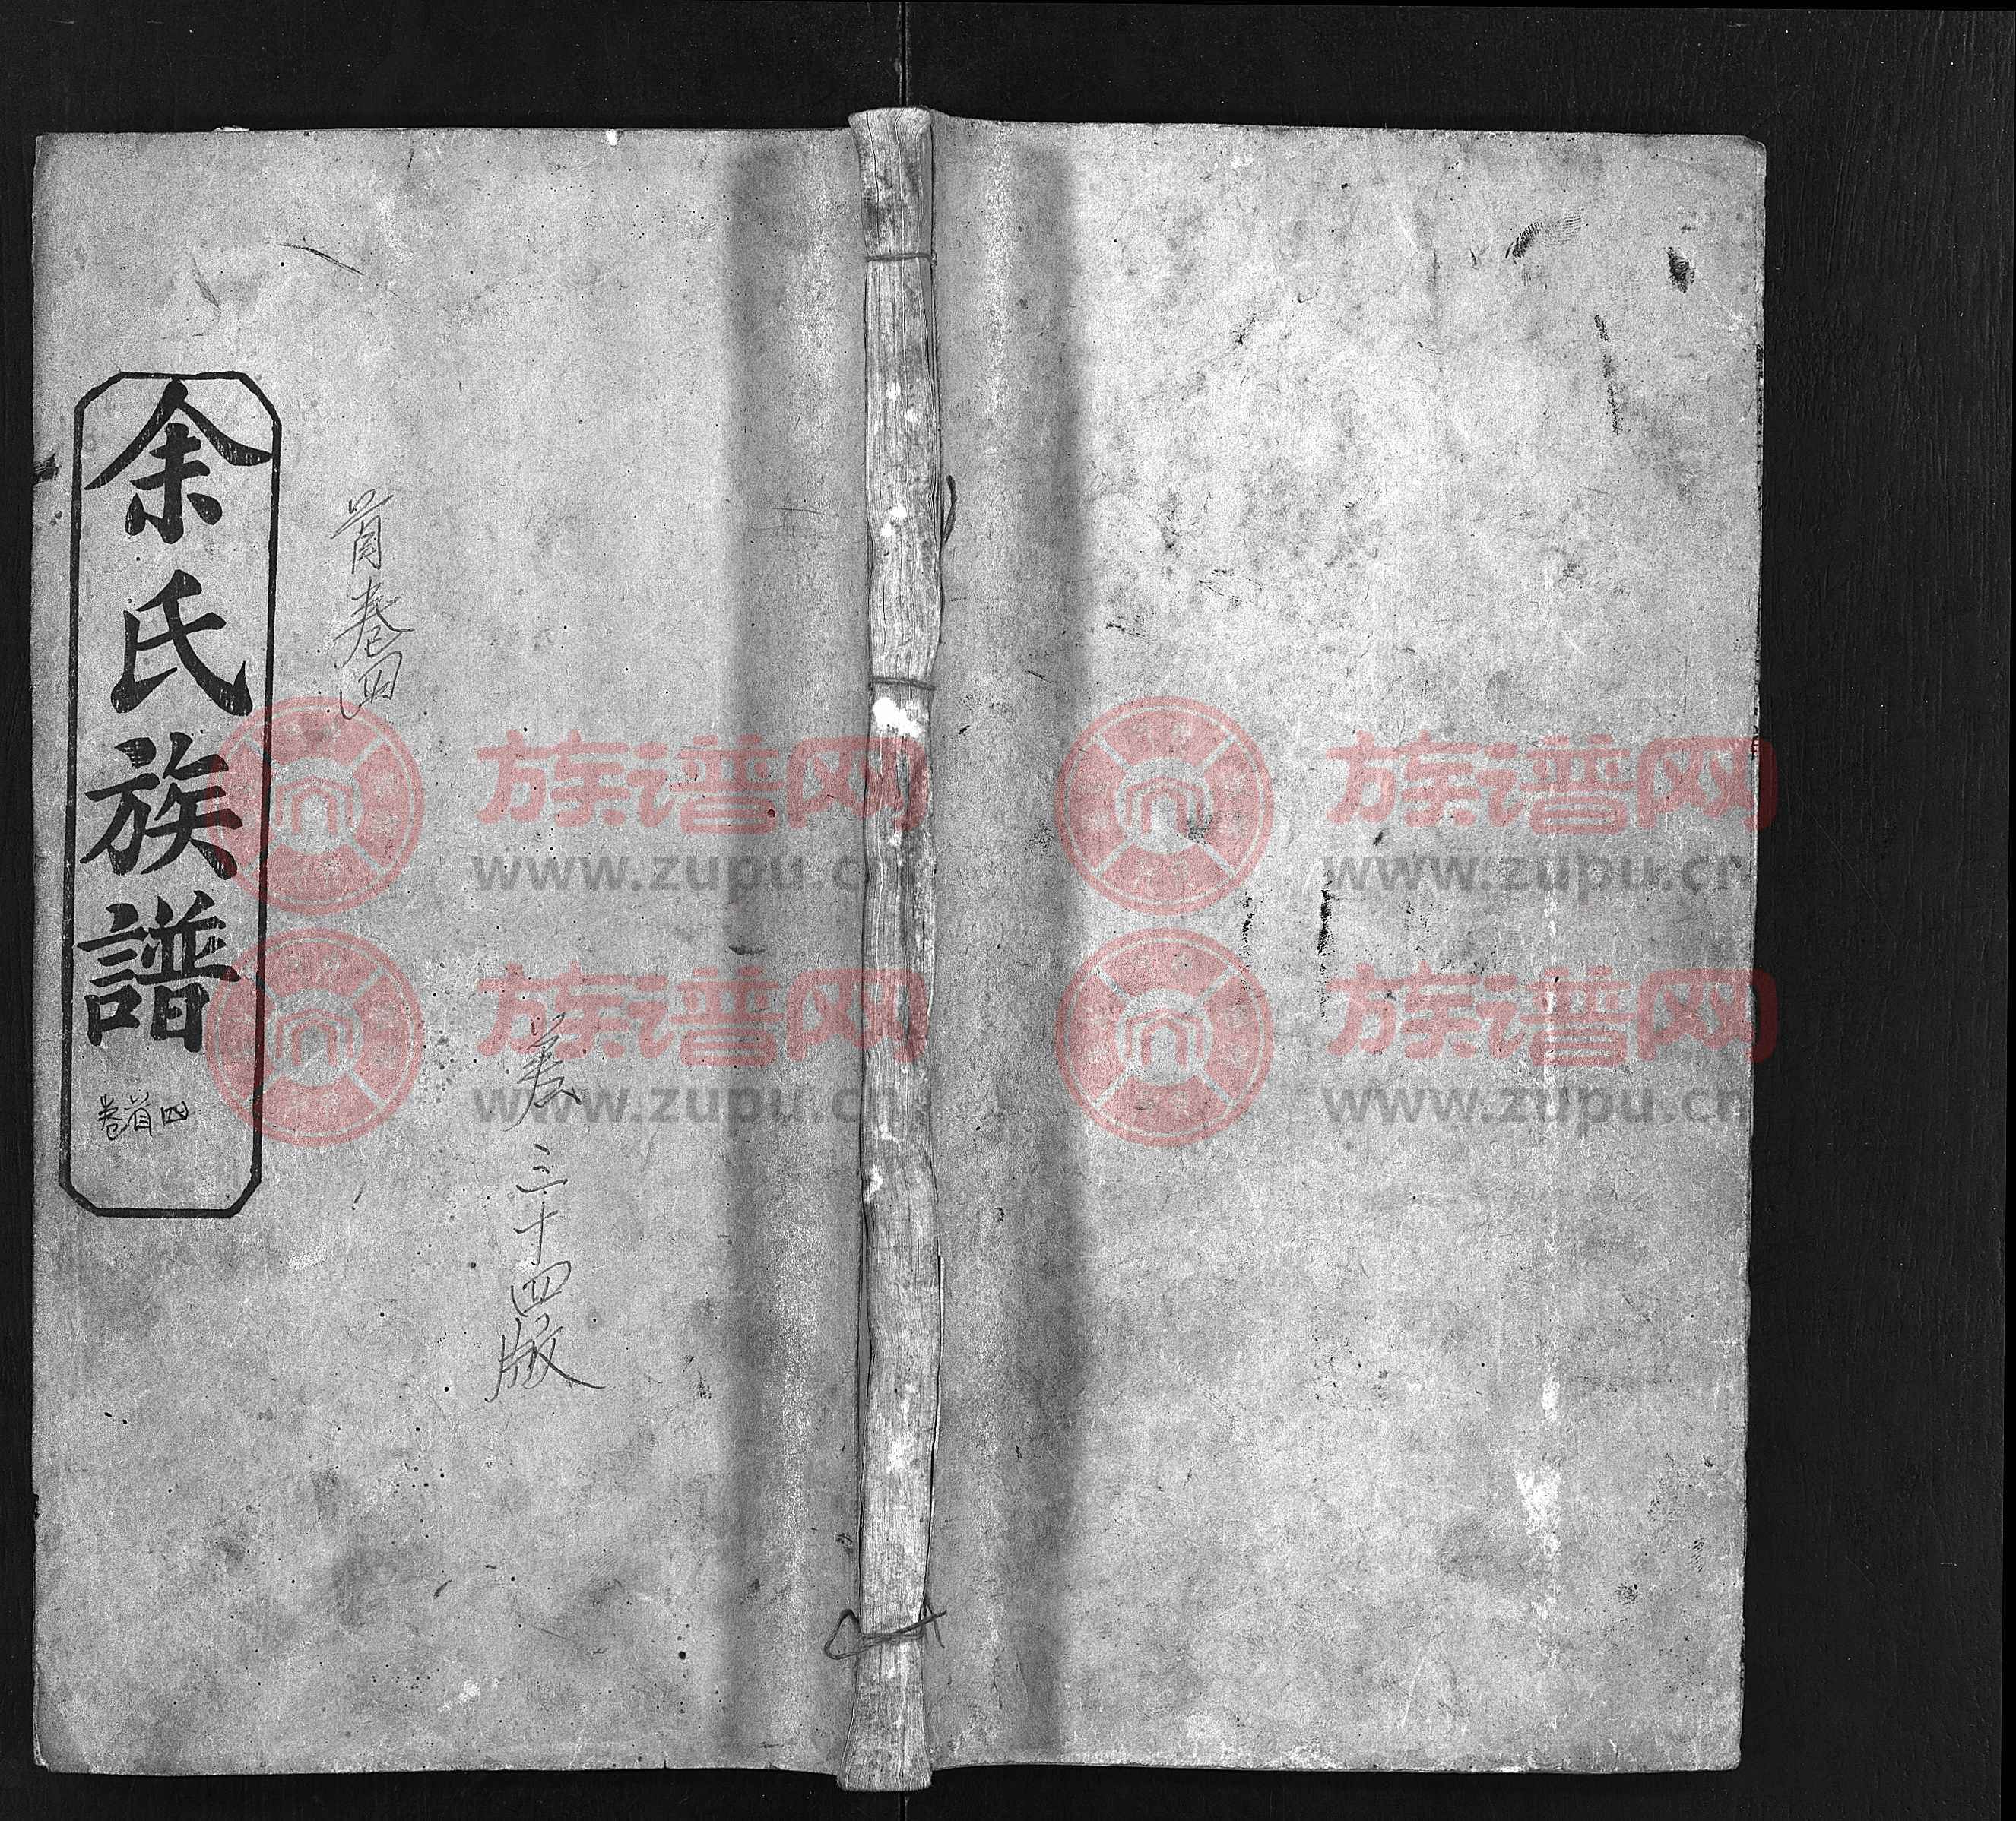 余氏族譜
卷首四
首卷四
差三十四版
族谱网
www.zupu.cn
族谱网
www.zupu.cn
族谱网
www.zupu.cn
族谱网
www.zupu.cn